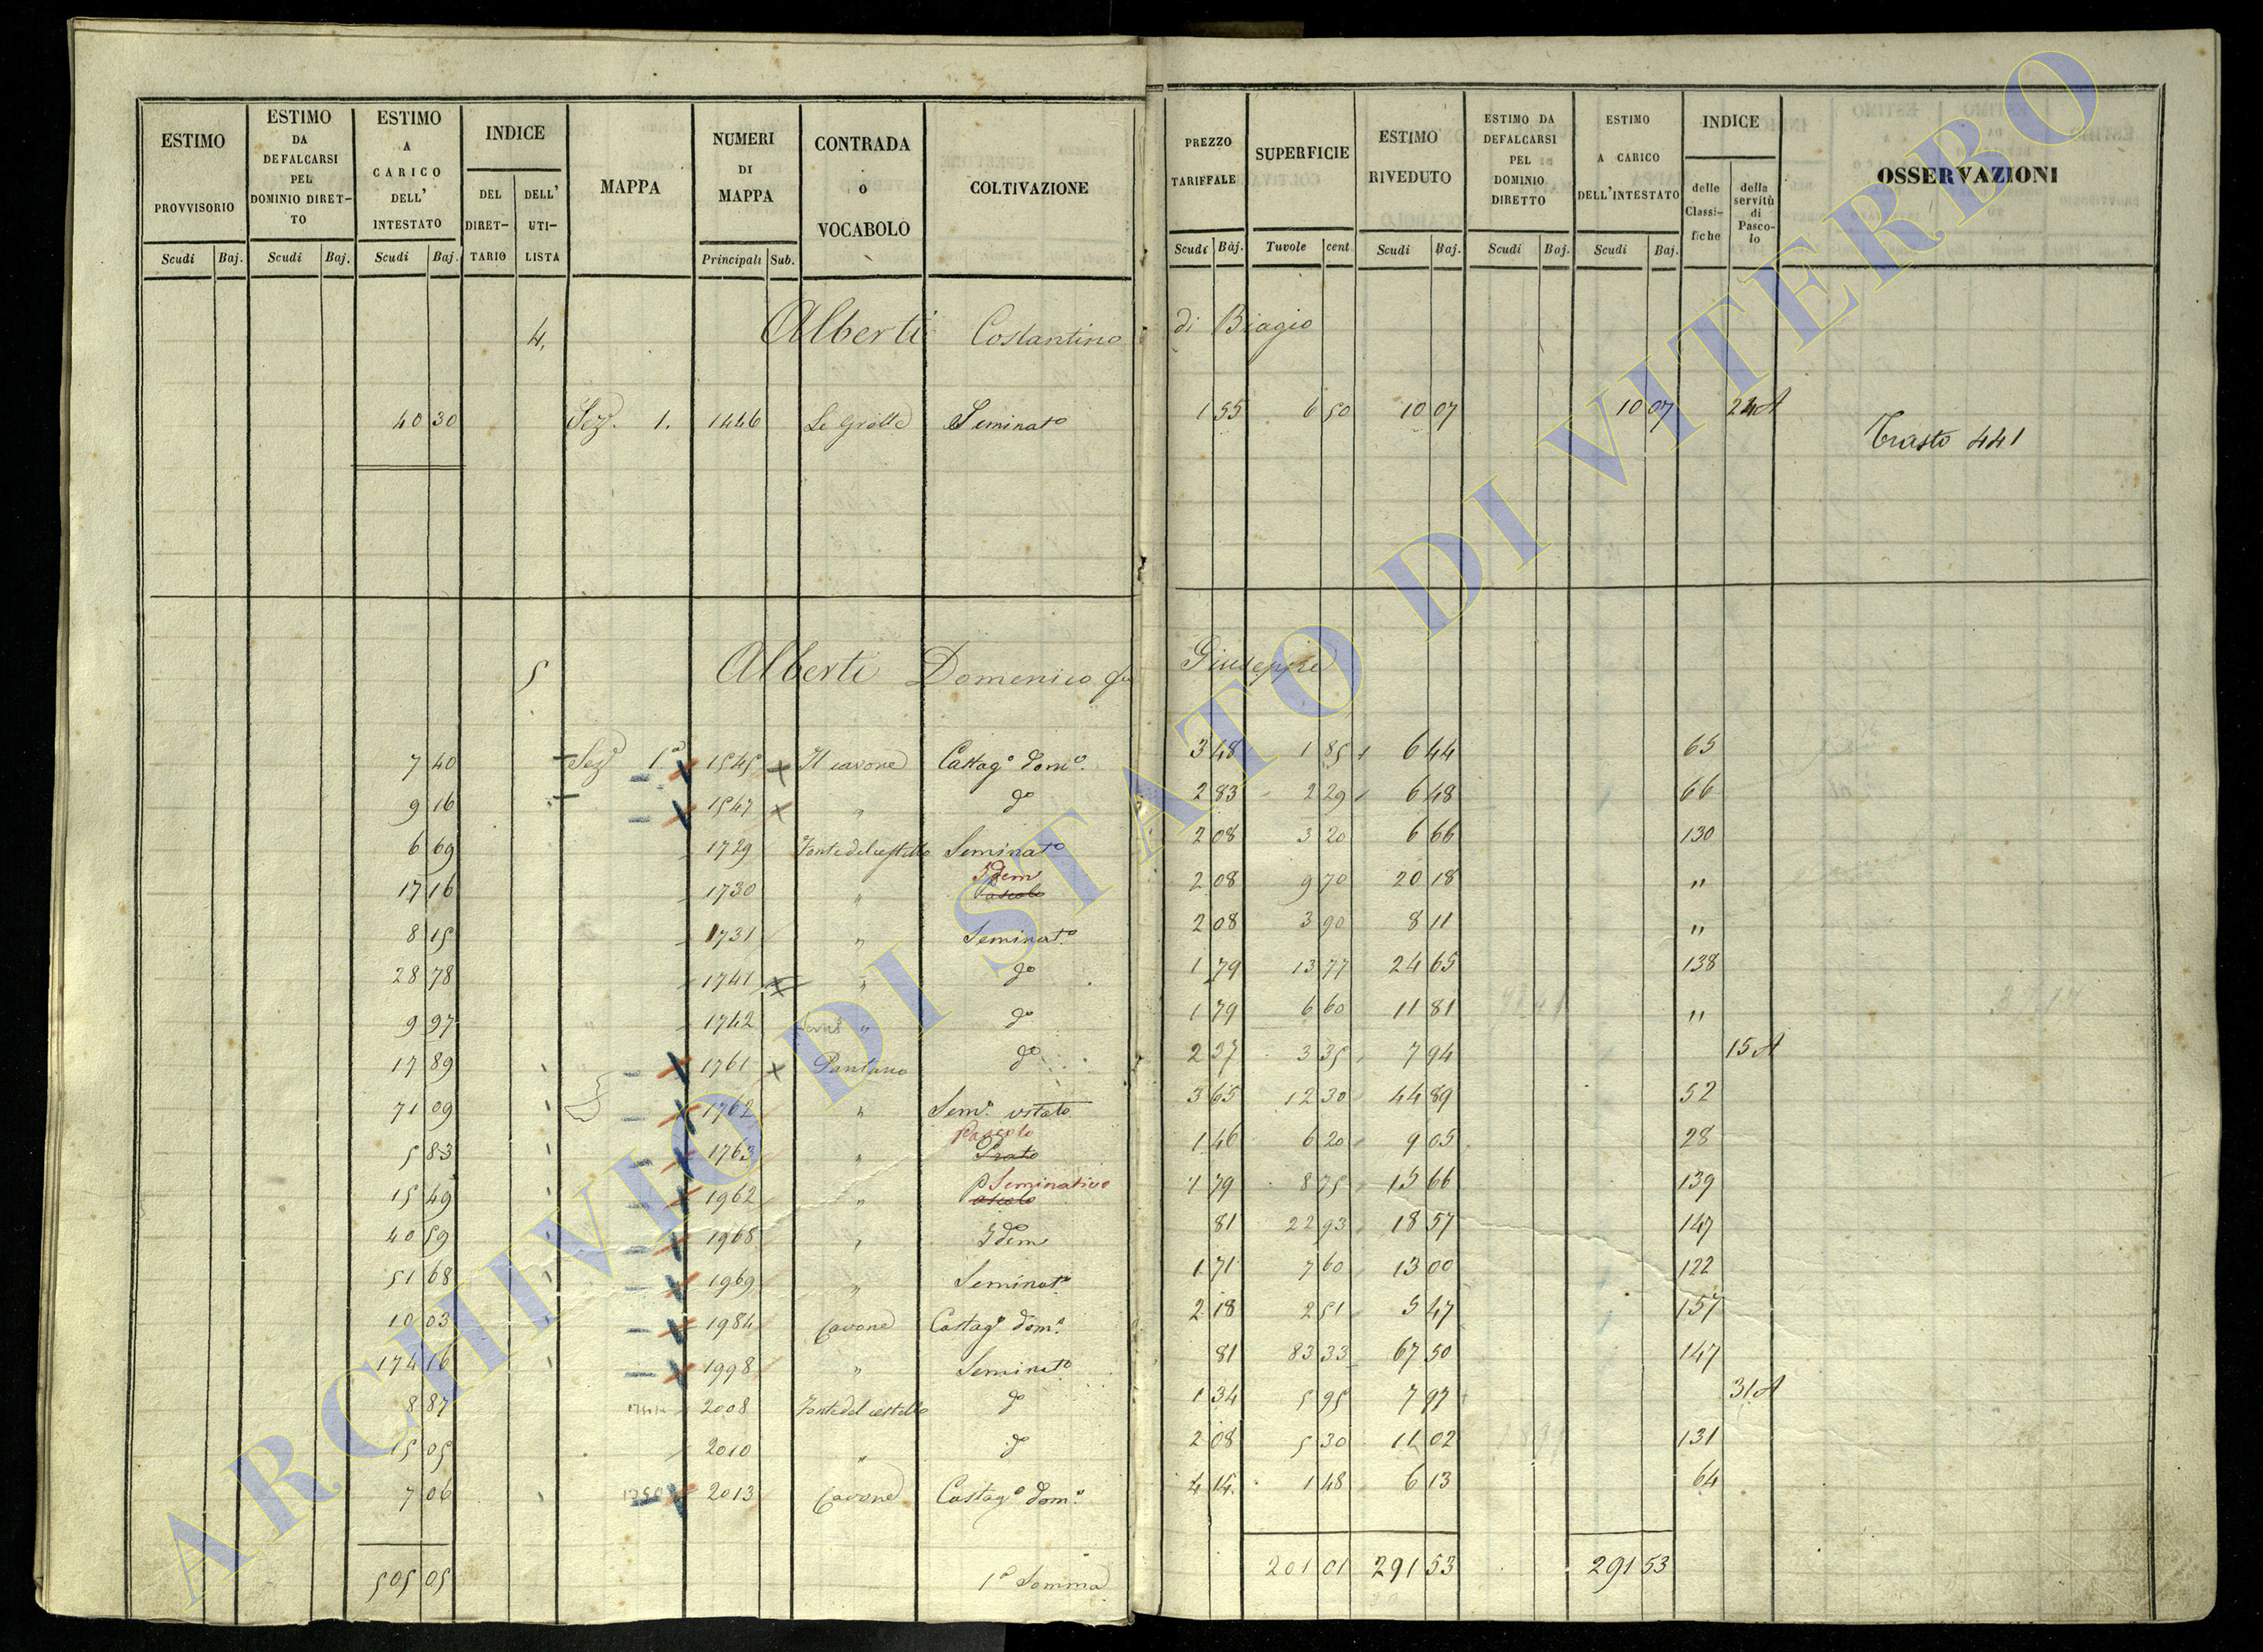 ESTIMO PROVVISORIO Scudi Baj.
ESTIMO DA DEFALCARSI PEL DOMINIO DIRET-TO Scudi Baj.
ESTIMO A CARICO DELL' INTESTATO Scudi Baj.
INDICE DEL DIRET-TARIO DELL' UTI-LISTA
MAPPA
NUMERI DI MAPPA Principali Sub.
CONTRADA o VOCABOLO
COLTIVAZIONE
PREZZO TARIFFALE Scudi Baj.
SUPERFICIE Tavole cent
ESTIMO RIVEDUTO Scudi Baj.
ESTIMO DA DEFALCARSI PEL DOMINIO DIRETTO Scudi Baj.
ESTIMO A CARICO DELL'INTESTATO Scudi Baj.
INDICE delle Classi-fiche della servitù di Pasco-lo
OSSERVAZIONI
4. Alberti Costantino di Biagio
40 30 Sez. 1. 1446 Le Grotte Seminato 1 55 6 50 10 07 10 07 24A
Trasto 441
5 Alberti Domenico qu Giuseppe
7 40 Sez 1ª 1545 Il cavone Castago domo. 3 48 1 85 6 44 65
9 16 1547 " do 2 83 2 29 6 48 66
6 69 1729 Fonte del cestello Seminato 2 08 3 20 6 66 130
17 16 1730 " Idem Pascolo 2 08 9 70 20 18 "
8 15 1731 " Seminato 2 08 3 90 8 11 "
28 78 1741 " do 1 79 13 77 24 65 138
9 97 1742 " do 1 79 6 60 11 81 "
17 89 1761 Pantano do 2 37 3 35 7 94 15A
71 09 1762 " Semo. vitato 3 65 12 30 44 89 52
5 83 1763 " Pascolo Prato 1 46 6 20 9 05 28
15 49 1962 " Seminativo Pascolo 1 79 8 75 15 66 139
40 59 1968 " Idem 81 22 93 18 57 147
51 68 1969 " Seminato 1 71 7 60 13 00 122
10 03 1984 Cavone Castago domo. 2 18 2 51 5 47 157
174 16 1998 " Seminato 81 83 33 67 50 147
8 87 2008 Fonte del cestello do 1 34 5 95 7 97 31A
15 05 2010 " do 2 08 5 30 11 02 131
7 06 2013 Cavone Castago domo. 4 14 1 48 6 13 64
505 05 1ª Somma 201 01 291 53 291 53
ARCHIVIO DI STATO DI VITERBO